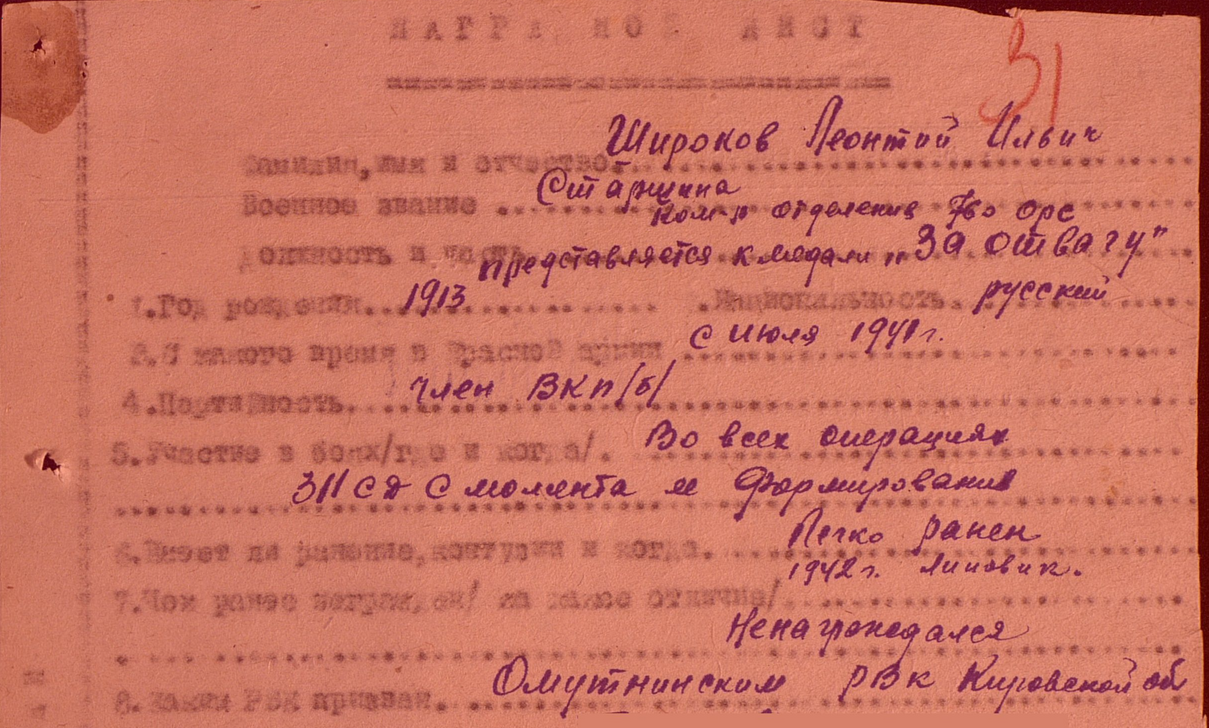 НАГРАДНОЙ ЛИСТ
31
Фамилия, имя и отчество. Широков Леонтий Ильич
Военное звание Старшина
Должность и часть Ком-р отделения 7во орс
представляется к медали „За отвагу"
1.Год рождения 1913 .Национальность русский
3.С какого время в Красной армии с Июля 1941г.
4.Партийность. член ВКП/б/
5.Участие в боях/где и когда/. Во всех операциях
311 СД с молента ее Формирования
6.Имеет ли ранение,контузии и когда. Легко ранен
1942г.
7.Чем ранее награжден/ за какое отличие/.
Ненагрождался
8.Каким РВК призван. Омутнинским РВК Кировской об